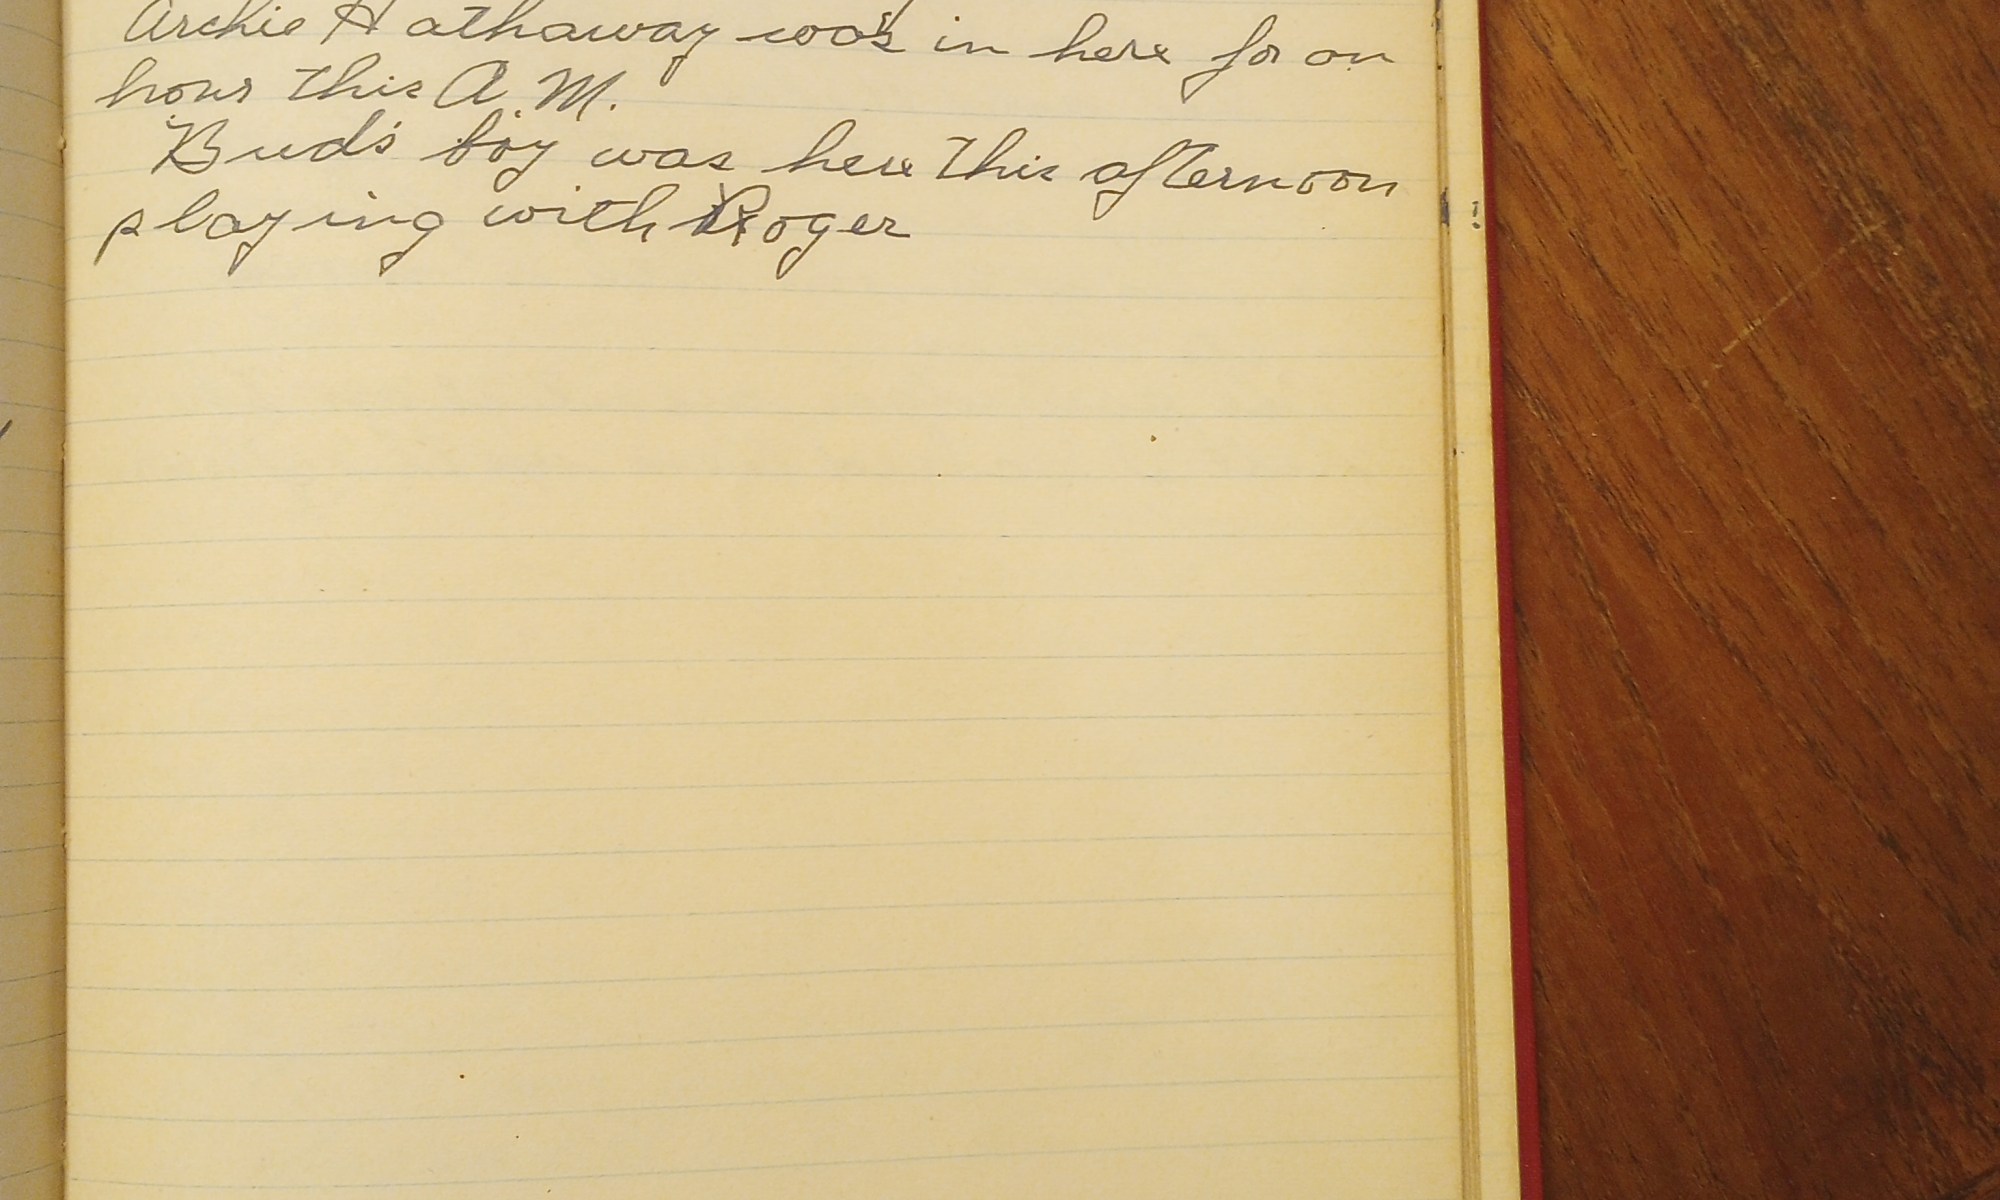 Archie Hathaway was in here for an
hour this A.M.
Bud's boy was here this afternoon
playing with Roger